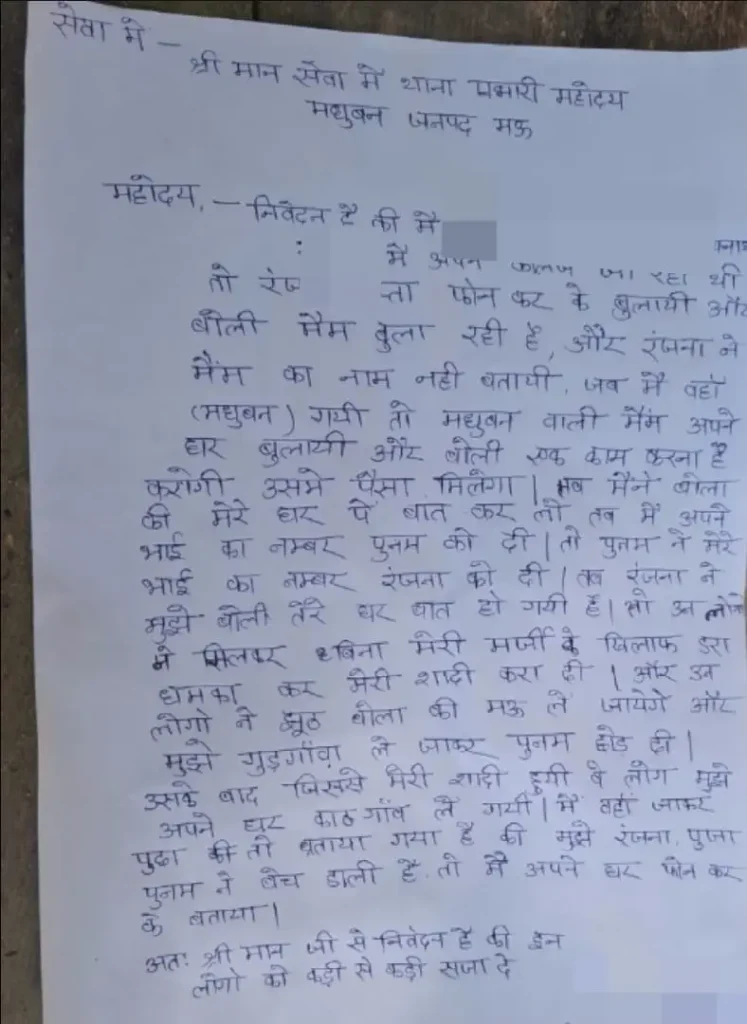 सेवा मे —
श्री मान सेवा मे थाना प्रभारी महोदय
मधुबन जनपद मऊ
महोदय, — निवेदन है की मै
मै अपने कालेज जा रहा थी
तो रंज ता फोन कर के बुलायी और
बोली मैम बुला रही है, और रंजना ने
मैंम का नाम नही बतायी. जब मै वहाँ
(मधुबन) गयी तो मधुबन वाली मैंम अपने
घर बुलायी और बोली एक काम करना है
करोगी उसमे पैसा मिलेगा | तब मैने बोला
की मेरे घर पे बात कर लो तब मैं अपने
भाई का नम्बर पुनम को दी | तो पुनम ने मेरे
भाई का नम्बर रंजना को दी | तब रंजना ने
मुझे बोली तेरे घर बात हो गयी है | तो उन लोगो
ने मिलकर बिना मेरी मर्जी के खिलाफ डरा
धमका कर मेरी शादी करा दी | और उन
लोगो ने झूठ बोला की मऊ ले जायेगे और
मुझे गुड़गाँवा ले जाकर पुनम छोड़ दी |
उसके बाद जिससे मेरी शादी हुयी वे लोग मुझे
अपने घर काठ गाँव ले गयी | मैं वहाँ जाकर
पुछा की तो बताया गया है की मुझे रंजना, पुजा
पुनम ने बेच डाली है. तो मै अपने घर फोन कर
के बताया |
अतः श्री मान जी से निवेदन है की इन
लोगो को कड़ी से कड़ी सजा दे